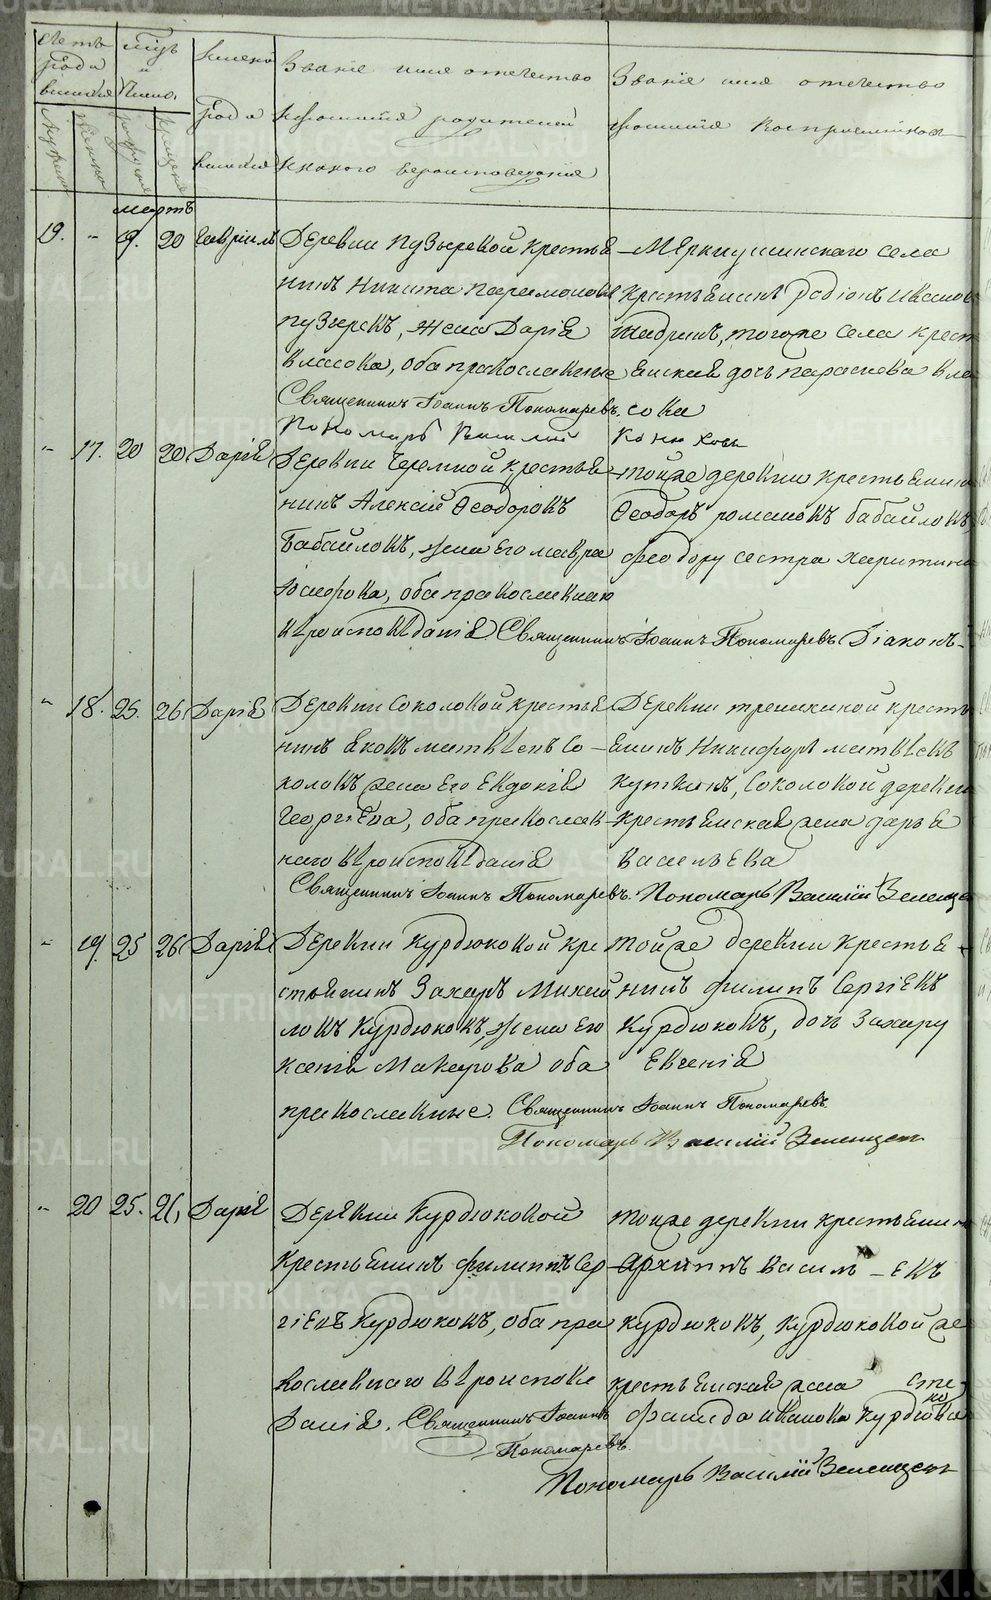 Счетъ родившихся
Мѣсяцъ и число.
Имена родившихся
Званіе имя отечество
и фамилія родителей
и какого вероисповеданія
Званіе имя отечество
фамилія восприемников
мужеска
женска
рожденія
крещенія
мартъ
19. " 19. 20 Гавріилъ Деревни Пузыревой крестья
нинъ Никита Парамоновъ
Пузыревъ, жена Дарія
Власова, оба православные
Священникъ Іоаннъ Пономаревъ.
Пономарь Василий
Меркушинскаго села
крестьянинъ Родіонъ Ивановъ
Шадринъ, тогоже села крест
янская дочь Параскева Вла
сова
" 17. 20 20 Дарія Деревни Черемной крестья
нинъ Алексій Ѳеодоровъ
Бабайловъ, жена его Мавра
Іосифова, оба православнаго
вѣроисповѣданія Священникъ Іоаннъ Пономаревъ Діаконъ
тойже деревни крестьянинъ
Ѳеодоръ Романовъ Бабайловъ,
Феодору сестра Харитина
" 18. 25. 26 Дарія Деревни Соколовой крестья
нинъ Яковъ Матвѣевъ Со
коловъ жена его Евдокія
Георгіева, оба православ
наго вѣроисповѣданія
Священникъ Іоаннъ Пономаревъ. Пономарь Василій Зеленцов
Деревни крестья
янинъ Никифоръ Матвѣевъ
Соколовой деревни
крестьянская жена Дарья
Васильева
" 19. 25 26 Дарія Деревни Курдюковой кре
стьянинъ Захаръ Михай
ловъ Курдюковъ, жена его
Ксенія Макарова оба
православные. Священникъ Іоаннъ Пономаревъ
Пономарь Василій Зеленцовъ
Тойже деревни крестья
нинъ Филипъ Сергіевъ
Курдюковъ, дочь Захару
Евгенія
" 20 25. 26, Дарія Деревни Курдюковой
крестьянинъ Филиппъ Сер
гіевъ Курдюковъ, оба пра
вославнаго вѣроисповѣ
данія. Священникъ Іоаннъ
Пономаревъ.
Пономарь Василій Зеленцовъ
тойже деревни крестьянинъ
Архиппъ Василь-евъ
Курдюковъ, Курдюковой же
крестьянская жена Сте
фанида Иванова Курдюкова
METRIKI.GASO-URAL.RU